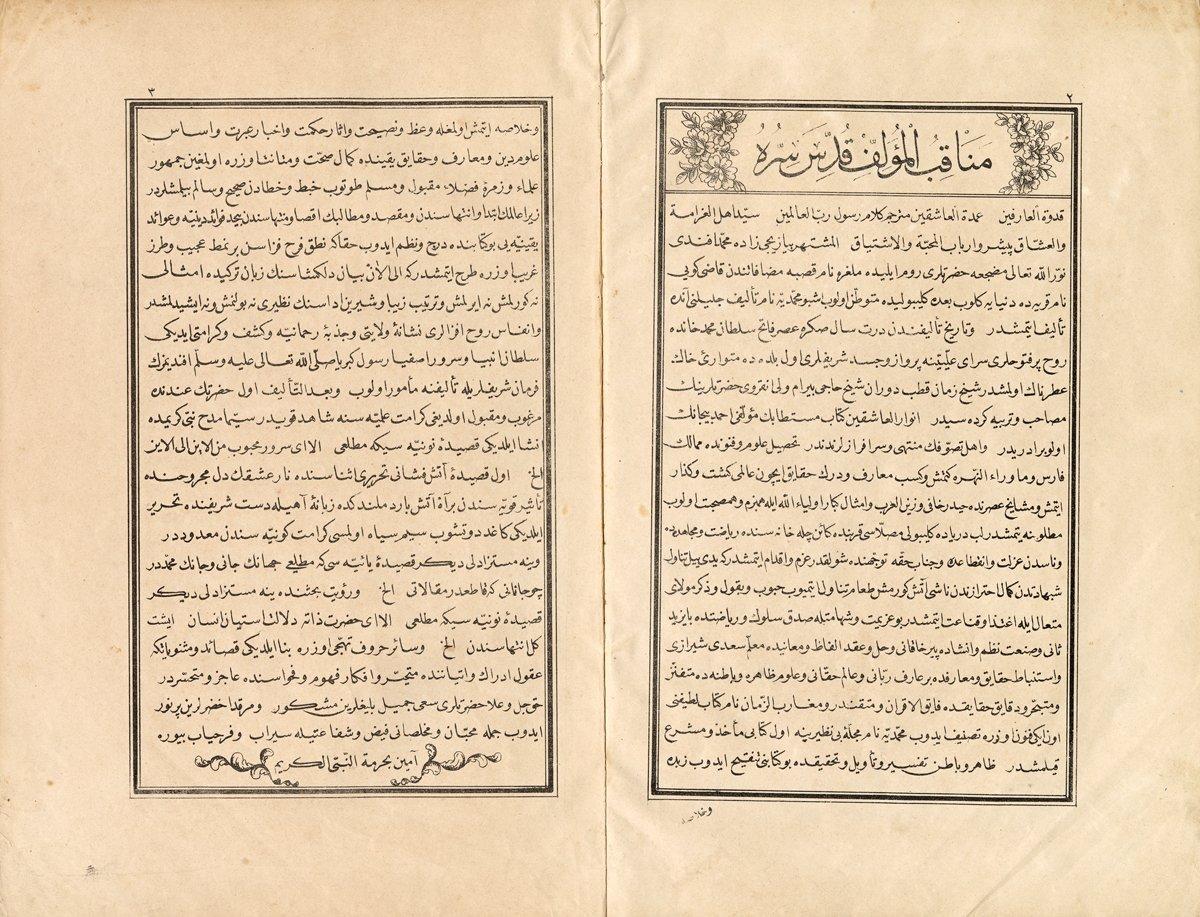 ٢
مناقب المؤلف قدس سره
قدوة العارفين عمدة العاشقين مترجم كلام رسول رب العالمين سيد اهل الغرامة
والعشاق پيشرو ارباب المحبة والاشتياق المشتهر بيازيجى زاده محمد افندى
نور الله تعالى مضجعه حضرتلرى روم ايليده ملغره نام قصبه مضافاتندن قاضى كويى
نام قريه ده دنيايه كلوب بعده كليبوليده متوطن اولوب شبو محمديه نام تأليف جليلنى آنده
تأليف ايتمشدر وتاريخ تأليفندن درت سال صكره عصر فاتح سلطان محمد خانده
روح پرفتوحلرى سراى عليينه پرواز وجسد شريفلرى اول بلده ده متوارئ خاك
عطرناك اولمشدر شيخ زمان قطب دوران شيخ حاجى بيرام ولى انقروى حضرتلرينك
مصاحب وتربيه كرده سيدر انوار العاشقين كتاب مستطابك مؤلفى احمد بيجانك
اولو برادريدر واهل تصوفك منتهى وسرافرازلرندندر تحصيل علوم وفنونده ممالك
فارس وما وراء النهره كتمش وكسب معارف ودرك حقايق ايچون عالمى كشت وكذار
ايتمش ومشايخ عصرنده حيدر خافى وزين العرب وامثال كبار اولياء الله ايله همبزم وهمصحبت اولوب
مطلوبنه يتمشدر لب درياده كليبولى مصلاسى قربنده كائن چله خانه سنده رياضت ومجاهده
وناسدن عزلت وانقطاعده وجناب حقه توجهنده شولقدر عزم واقدام ايتمشدركه يدى ييل تناول
شبهاتدن كمال احترازندن ناشى آتش كورمش طعام تناول ايتميوب حبوب وبقول وذكر مولاى
متعال ايله اغتذا وقناعت ايتمشدر بو عزيمت وشهامتله صدق سلوك ورياضتده بايزيد
ثانى وصنعت نظم وانشاده پير خاقانى وحل وعقد الفاظ ومعانيده معلم سعدى شيرازى
واستنباط حقايق ومعارفده بر عارف ربانى وعالم حقانى وعلوم ظاهره وباطنه ده متفنن
ومتبحر ودقايق حقايقده فايق الاقران ومتقنتدر ومغارب الزمان نام كتاب لطيفنى
اون ايكى فنون اوزره تصنيف ايدوب محمديه نام مجلۀ بى نظيرينه اول كتابى مأخذ ومشرع
قيلمشدر ظاهر وباطن تفسير وتأويل وتحقيقده بو كتابنى تنقيح ايدوب زبده
وخلاصه
٣
وخلاصه ايتمش اولمغله وعظ ونصيحت واثار حكمت واخبار عبرت واساس
علوم دين ومعارف وحقايق يقينده كمال صحت ومتانت اوزره اولمغين جمهور
علماء وزمرۀ فضلاء مقبول ومسلم طوتوب خبط وخطادن صحيح وسالم بيلمشلردر
زيرا عالمك ابتدا وانتهاسندن ومقصد ومطالبك اقصا ومنتهاسندن بيحد فوائد دينيه وعوائد
يقينيه يى بو كتابنده درج ونظم ايدوب حقاكه نطق فرح فزاسن بر نمط عجيب وطرز
غريب اوزره طرح ايتمشدركه الى الآن بيان دلكشاسنك زبان تركيده امثالى
نه كورلمش نه ايرلمش وترتيب زيبا وشيرين اداسنك نظيرى نه بولنمش ونه ايشيدلمشدر
وانفاس روح افزالرى نشانۀ ولايتى وجذبۀ رحمانيه وكشف وكرامتى ايديكى
سلطان انبيا وسرور اصفيا رسول كبريا صلى الله تعالى عليه وسلم افنديمزك
فرمان شريفلريله تأليفنه مأمور اولوب وبعد التأليف اول حضرتك عندنده
مرغوب ومقبول اولديغى كرامت عليه سنه شاهد قويدر سيما مدح نبئ كريمده
انشا ايلديكى قصيدۀ نونيه سيكه مطلعى الا اى سرور محبوب من الاين الى الاين
الخ اول قصيدۀ آتش فشانى تحريرى اثناسنده نار عشقك دل مجروحنده
تأثير قويه سندن برآه آتش بارد ملند كده زبانۀ آهيله دست شريفنده تحرير
ايلديكى كاغد دوتشوب سيم سياه اولمسى كرامت كونيه سندن معدوددر
وينه مستزادلى ديكر قصيدۀ يائيه سى كه مطلعى جهانك جانى وجانك محمددر
چو جانانى كه قاطعدر مقالاتى الخ ورؤيت بحثنده ينه مستزادلى ديكر
قصيدۀ نونيه سيكه مطلعى الا اى حضرت ذاته دلالت استيان انسان ايشت
كل انتهاسندن الخ وسائر حروف تهجى اوزره بنا ايلديكى قصائد ومثنوياتكه
عقول ادراك واتياننده متحير وافكار فهوم وفحواسنده عاجز ومتحسردر
حق جل وعلا حضرتلرى سعى جميل بليغلرين مشكور ومرقد اخضرلرين پرنور
ايدوب جمله محبان ومخلصانى فيض وشفاعتيله سيراب وفرحياب بيوره
آمين بحرمة النبى الكريم